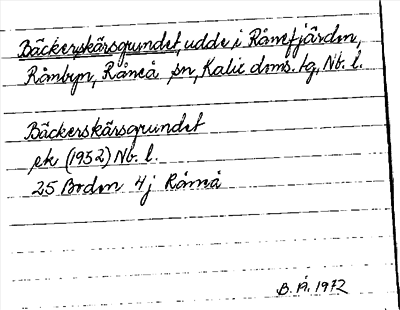 Bäckerskärsgrundet, udde i Rånefjärden,
Rånbyn, Råneå sn, Kalix doms. tg, Nb. l.
Bäckerskärsgrundet
ek (1952) Nb. l.
25 Boden 4j Råneå
B. Å. 1972